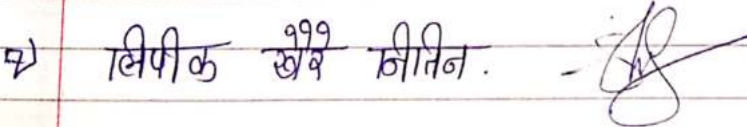 २) लिपीक खैरे नीतिन.